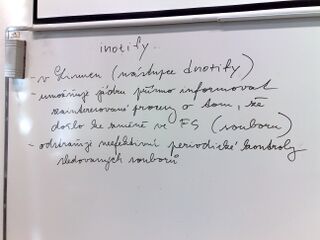 inotify..
- v Linuxu (nástupce dnotify)
- umožňuje jádru přímo informovat
zainteresované procesy o tom, že
došlo ke změně ve FS (souboru)
- odstraňuje neefektivní periodické kontroly
sledovaných souborů